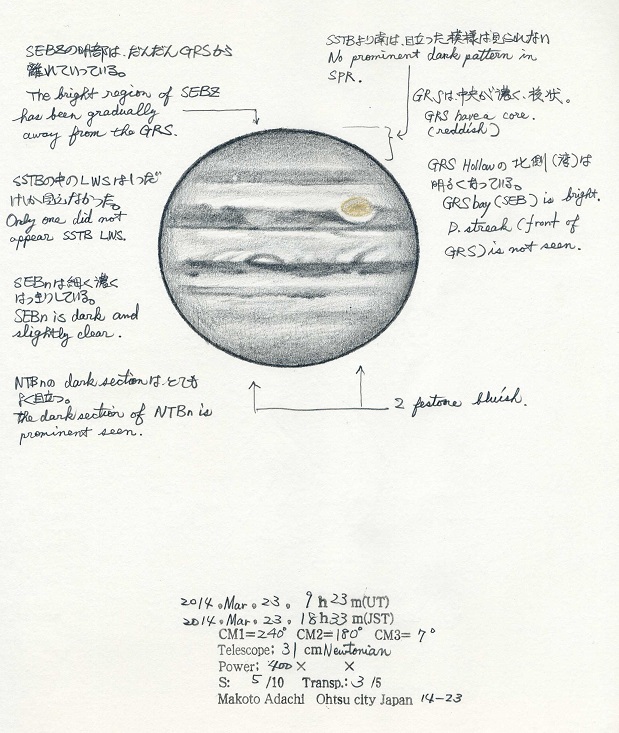 SEBZの明部は、だんだんGRSから
離れていっている。
The bright region of SEBZ
has been gradually
away from the GRS.
SSTBの中のLWSは1つだ
けしか見えなかった。
Only one did not
appear SSTB LWS.
SEBnは細く濃く
はっきりしている。
SEBn is dark and
slightly clear.
NTBnの dark sectionは、とても
よく目立つ。
the dark section of NTBn is
prominent seen.
SSTBより南は、目立った模様は見られない
No prominent dark pattern in
SPR.
GRSは、中央が濃く、核状。
GRS have a core.
(reddish)
GRS Hollowの北側(湾)は
明るくなっている。
GRS bay (SEB) is bright.
D. streak (front of
GRS) is not seen.
2 festone bluish.
2014.Mar.23. 9h 23m(UT)
2014.Mar.23. 18h33m(JST)
CM1=240° CM2=180° CM3= 7°
Telescope: 31 cm Newtonian
Power: 400× ×
S: 5/10 Transp.: 3/5
Makoto Adachi Ohtsu city Japan 14-23